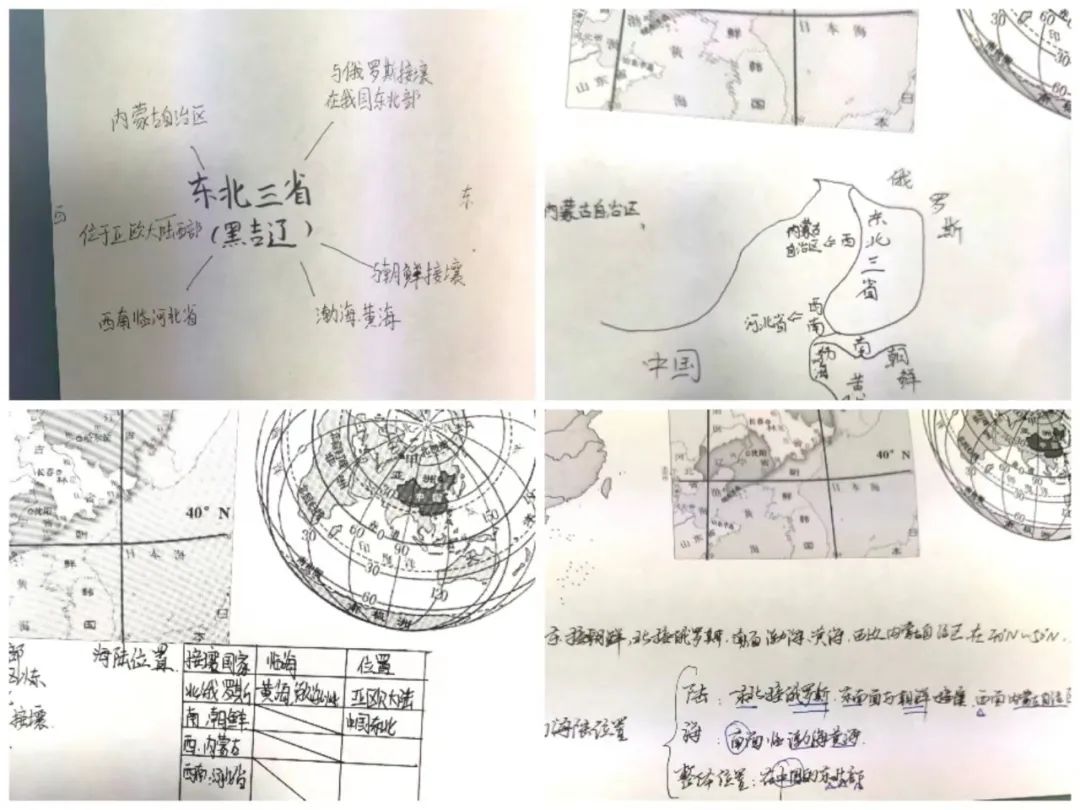 与俄罗斯接壤
在我国东北部
内蒙古自治区
东北三省
(黑吉辽)
东
西
位于亚欧大陆西部
与朝鲜接壤
西南临河北省
渤海.黄海
日本海
黄
鲜
韩
山东
海
国
日
本
30
60
30
60
内蒙古自治区
俄
罗
斯
东北三省
内蒙古
自治区⇐西
河北省⇐西南
渤海
南
黄
朝鲜
中国
吉
长春
林
沈阳
朝
40°N
日本海
黄
鲜
韩
海
国
日
亚
洲
中国
30
60
0
60
90
30
60
120
150
印度洋
南极洲
海陆位置
接壤国家
临海
位置
北.俄罗斯
黄海,渤海
亚欧大陆
南.朝鲜
中国东北
西.内蒙古
西南:河北省
接壤.
长春
林
沈阳
朝
40°N
日本海
鲜
韩
山东
海
国
日
本
30
60
东接朝鲜,北接俄罗斯,南面渤海.黄海.西边内蒙古自治区在40°N~50°N.
海陆位置
陆:东北接俄罗斯.东南面与朝鲜接壤.西面内蒙古自治区
海:南面临渤海黄海.
整体位置:在中国的东北部